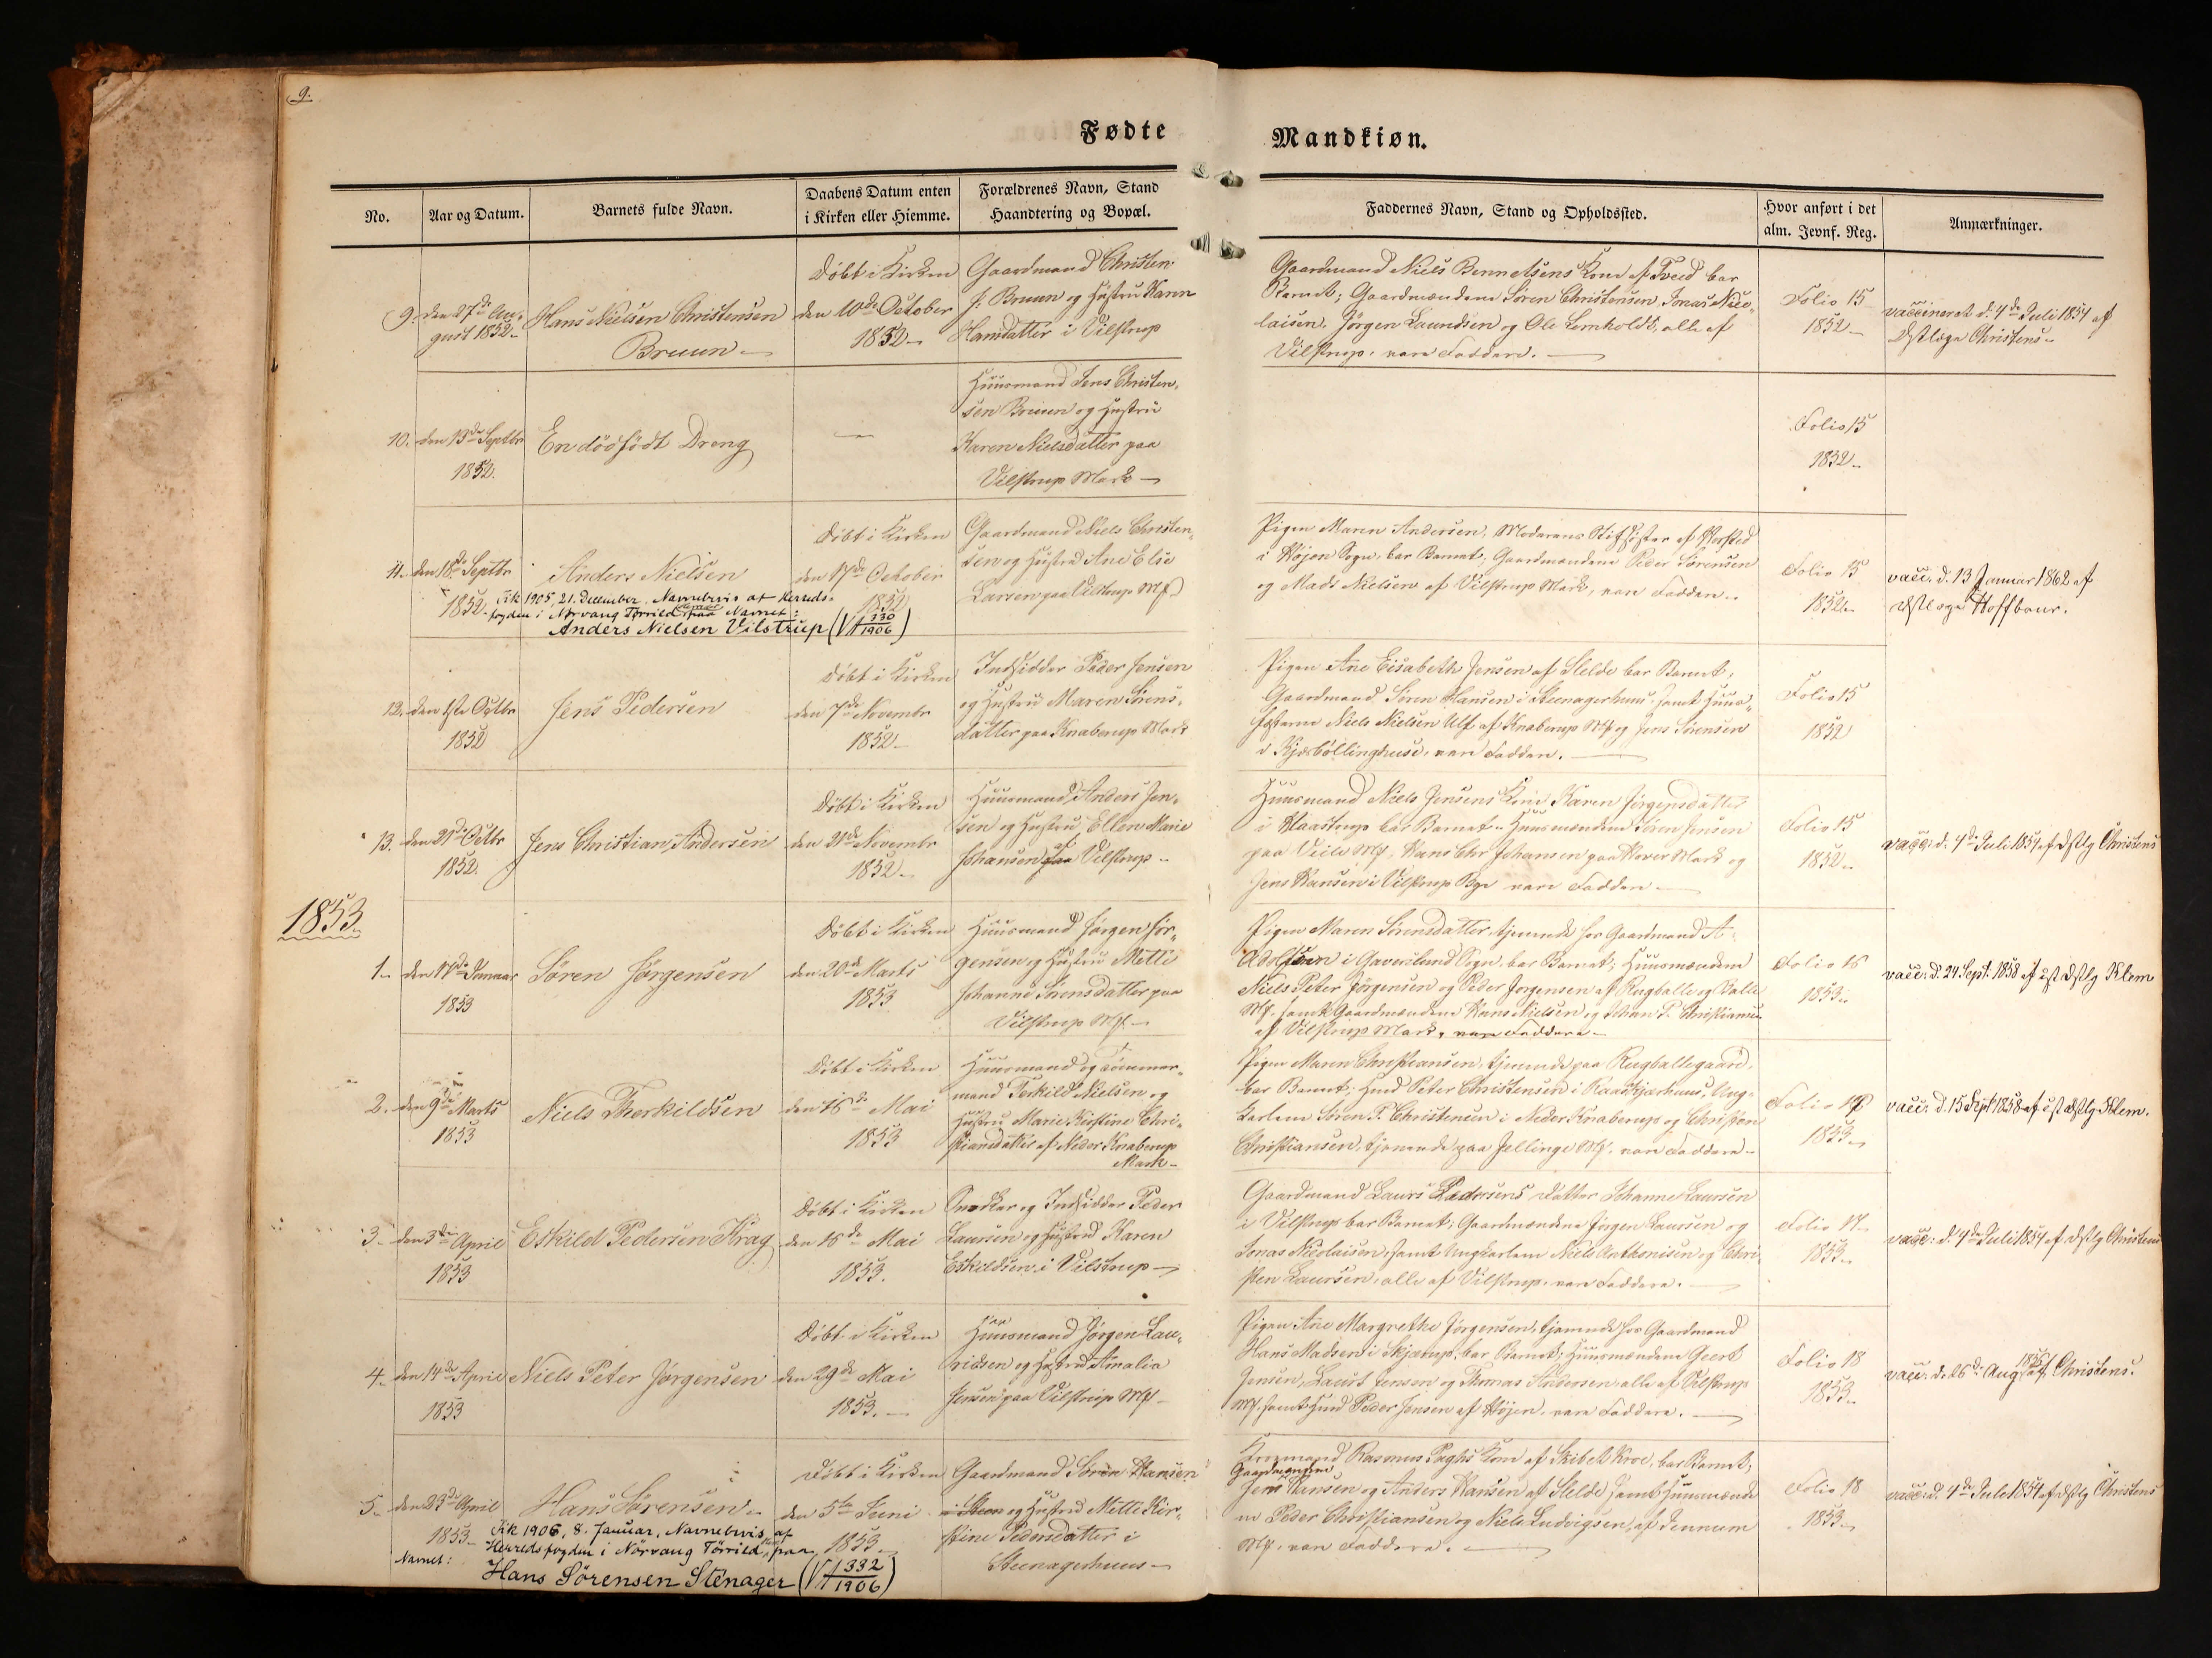 9.
Fødte
Mandkiøn.
No.
Aar og Datum.
Barnets fulde Navn.
Daabens Datum enten
i Kirken eller Hiemme.
Forældrenes Navn, Stand
Haandtering og Bopæl.
Faddernes Navn, Stand og Opholdssted.
Hvor anført i det
alm. Jevnf. Reg.
Anmærkninger.
9. den 27de Au-
gust 1852.
Hans Nielsen Christensen
Bruun
Döbt i Kirken
den 10de October
1852
Gaardmand Christen
J. Bruun og Hustru Karen
Hansdatter i Vilstrup
Gaardmand Niels Bennetsens Kone af Tved bar
Barnet; Gaardmændene Sören Christensen, Jonas Nico-
laisen, Jörgen Laundsen og Ole Lemholdt, alle af
Vilstrup, vare Faddere.
Folio 15
1852
vaccineret d. 4de Juli 1854 af
Dstlæge Christens
10. den 13de Septbr
1852.
En dödfödt Dreng
Huusmand Jens Christen-
sen Bruun og Hustru
Karen Nielsdatter paa
Vilstrup Mark
Folio 15
1852
11. den 18de Septbr
1852.
Anders Nielsen
Döbt i Kirken
den 17de October
1852
Gaardmand Niels Christen-
sen og Hustru Ane Else
Larsen paa Vilstrup Mk
Fik 1905, 21. December, Navnebevis af Herreds-
fogden i Nørvang Tørrild Herred paa Navnet:
Anders Nielsen Vilstrup (VA 330/1906)
Pigen Maren Andersen, Moderens Stifsøster af Horsted
i Højen Sogn, bar Barnet, Gaardmændene Peder Sörensen
og Mads Nielsen af Vilstrup Mark, vare Faddere.
Folio 15
1852
vacc. d. 13 Januar 1862 af
Dstlæge Hoffbaur.
12. den 1ste Octbr
1852
Jens Pedersen
Döbt i Kirken
den 7de Novembr
1852
Indsidder Peder Jensen
og Hustru Maren Sörens-
datter paa Knaberup Mark
Pigen Ane Eisabeth Jensen af Slelde bar Barnet,
Gaardmand Sören Hansen i Steenagerhuus samt Huus-
fæsterne Niels Nielsen Ulf af Knaberup Mk og Jens Sörensen
i Kjærböllinghuse, vare Faddere.
Folio 15
1852
13. den 21de Octbr
1852.
Jens Christian Andersen
Döbt i Kirken
den 21de Novembr
1852
Huusmand Anders Jen-
sen og Hustru Ellen Marie
Johansen af Vilstrup
Huusmand Niels Jensens Kone Karen Jörgensdatter
i Haastrup bar Barnet. Huusmændene Sören Jensen
paa Veile Mk, Hans Chr Johansen paa Hover Mark og
Jens Hansen i Vilstrup Bye vare Faddere
Folio 15
1852
vacc. d. 4de Juli 1854 af Dstlg Christens
1853.
1. den 17de Januar
1853
Sören Jørgensen
Döbt i Kirken
den 20de Marts
1853
Huusmand Jörgen Jör-
gensen og Hustru Mette
Johanne Sörensdatter paa
Vilstrup Mk
Pigen Maren Sörensdatter, tjenende hos Gaardmand A.
Adolfsen i Gauerslund Sogn, bar Barnet; Huusmændene
Niels Peter Jörgensen og Peder Jorgensen af Rugballe og Balle
Mk. samt Gaardmændene Hans Nielsen og Johan P. Christiansen
af Vilstrup Mark, vare Faddere
Folio 16
1853
vacc. d. 24 Sept. 1858 af cst Dstlg Klem
2. den 9de Marts
1853
Niels Therkildsen
Döbt i Kirken
den 16de Mai
1853
Huusmand og Tömmer-
mand Terkild Nielsen og
Hustru Marie Kirstine Chri-
stiansdatter af Neder Knaberup
Mark
Pigen Maren Christiansen, tjenende paa Rugballegaard,
bar Barnet; Husmd Peter Christensen i Raaskjærhuus, Ung-
karlene Sören P. Christensen i Neder Knaberup og Christen
Christiansen, tjenende paa Jellinge Mk, vare Faddere
Folio 17
1853
vacc. d. 15 Sept 1858 af cst Dstlg Klem.
3. den 3die April
1853
Eskild Pedersen Krag
Döbt i Kirken
den 16de Mai
1853.
Snedker og Indsidder Peder
Laursen og Hustru Karen
Eskildsen i Vilstrup
Gaardmand Laurs Pedersens Datter Johanne Laursen
i Vilstrup bar Barnet; Gaardmændene Jörgen Laursen og
Jonas Nicolaisen, samt Ungkarlene Niels Anthonisen og Chri-
sten Laursen, alle af Vilstrup, vare Faddere.
Folio 17
1853
vacc: d. 4de Juli 1854 af Dstlg Christens
4. den 14de April
1853
Niels Peter Jørgensen
Döbt i Kirken
den 29de Mai
1853.
Huusmand Jörgen Lau-
ridsen og Hustru Amalia
Jensen paa Vilstrup Mk
Pigen Ane Margrethe Jörgensen, tjenende hos Gaardmand
Hans Madsen i Skjærup, bar Barnet; Huusmændene Geert
Jensen, Laust Jensen og Thomas Andersen alle af Vilstrup
Mk, samt Husmd Peder Jensen af Höjen, vare Faddere.
Folio 18
1853
vacc. d. 26de Aug 1855 af Christens.
5. den 23de April
1853
Hans Sørensen
Döbt i Kirken
den 5te Juni
1853
Gaardmand Sören Hansen
og Hustru Mette Kir-
stine Pedersdatter i
Steenagerhuus
Fik 1906, 8. Januar, Navnebevis af
Herredsfogden i Nörvang Törrild Herred paa
Navnet:
Hans Sörensen Stenager (VA 332/1906)
Kroemand Rasmus Paghs Kone af Skibet Kroe, bar Barnet;
Gaardmændene
Jens Hansen og Anders Hansen af Slelde samt Huusmænde-
ne Peder Christiansen og Niels Ludvigsen, af Jennum
Mk, vare Faddere.
Folio 18
1853
vacc: d. 4de Juli 1854 af Dstlg Christens